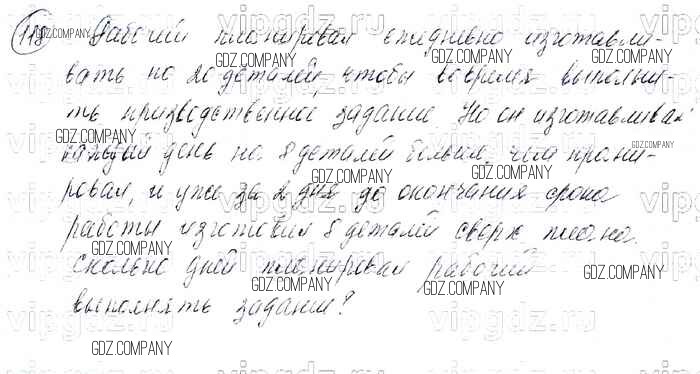 118 Рабочий планировал ежедневно изготавли-
вать по 20 деталей, чтобы вовремя выполни-
ть призводственное задание. Но он изготавливал
каждый день на 8 деталей больше, чем прани-
ровал, и уже за 2 дня до окончания срока
работы изготовил 8 деталей сверх плана.
Сколько дней планировал рабочий
выполнять задание?